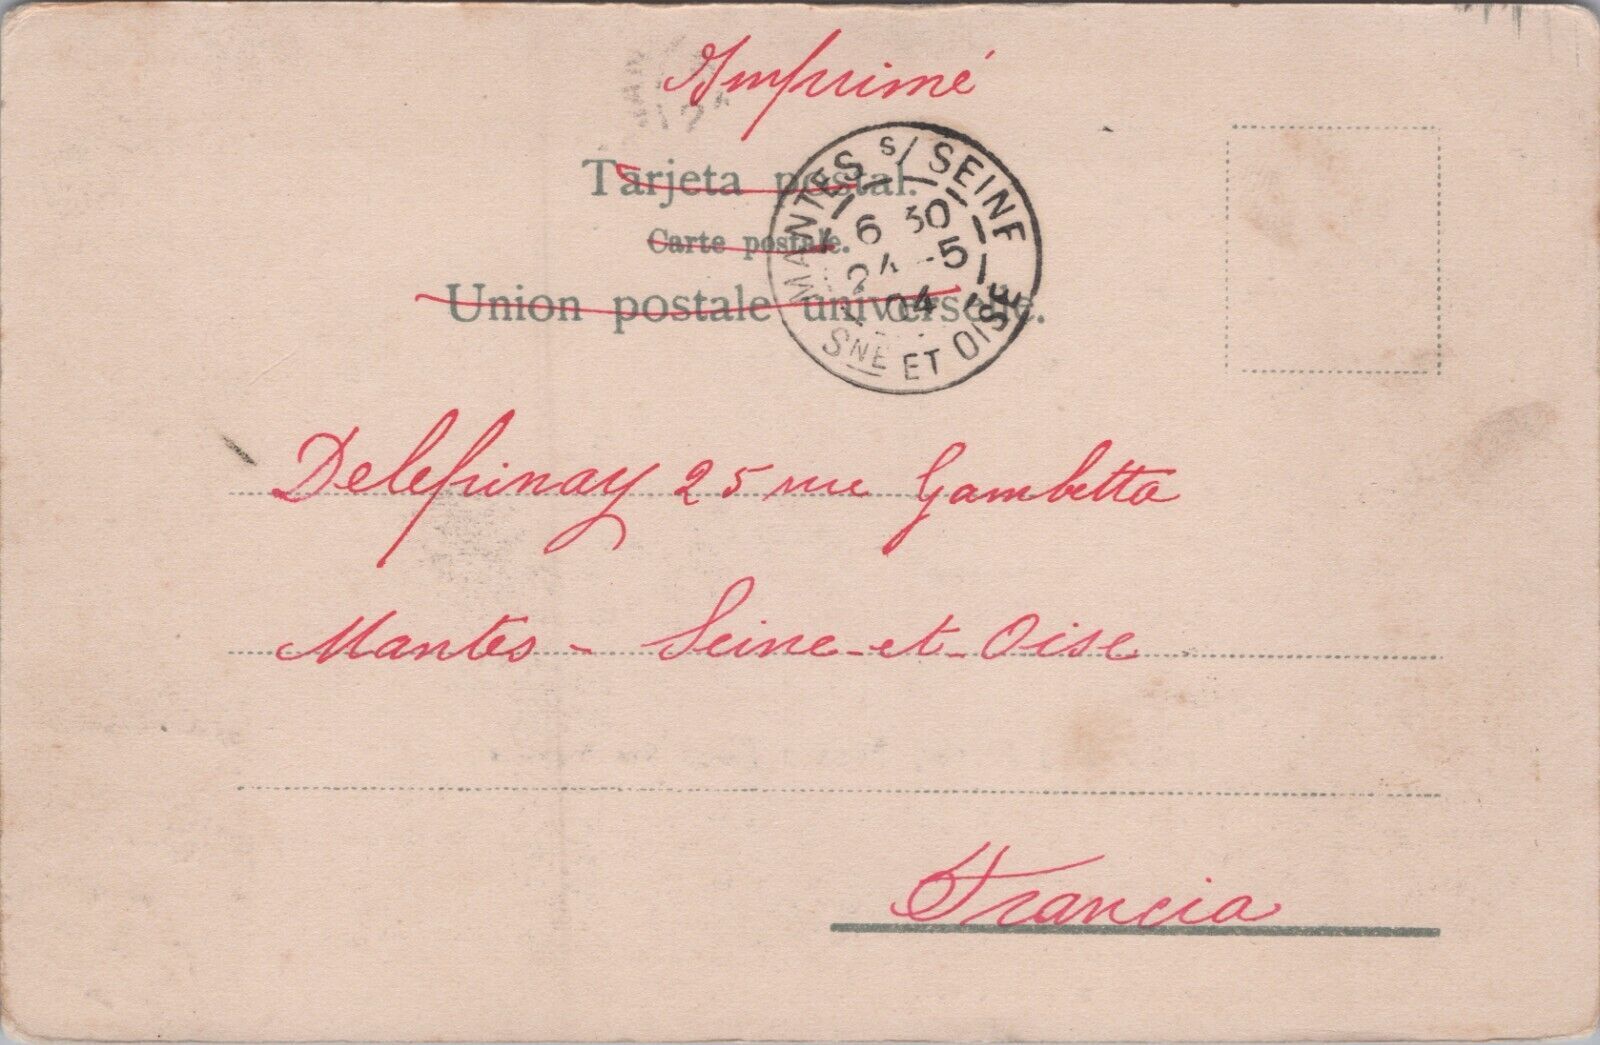 Imprimé
Tarjeta postal.
Carte postale.
Union postale universelle.
MANTES S/ SEINE
6 30
24 -5
04
SNE ET OISE
Delepinay 25 rue Gambetta
Mantes - Seine-et-Oise
Francia